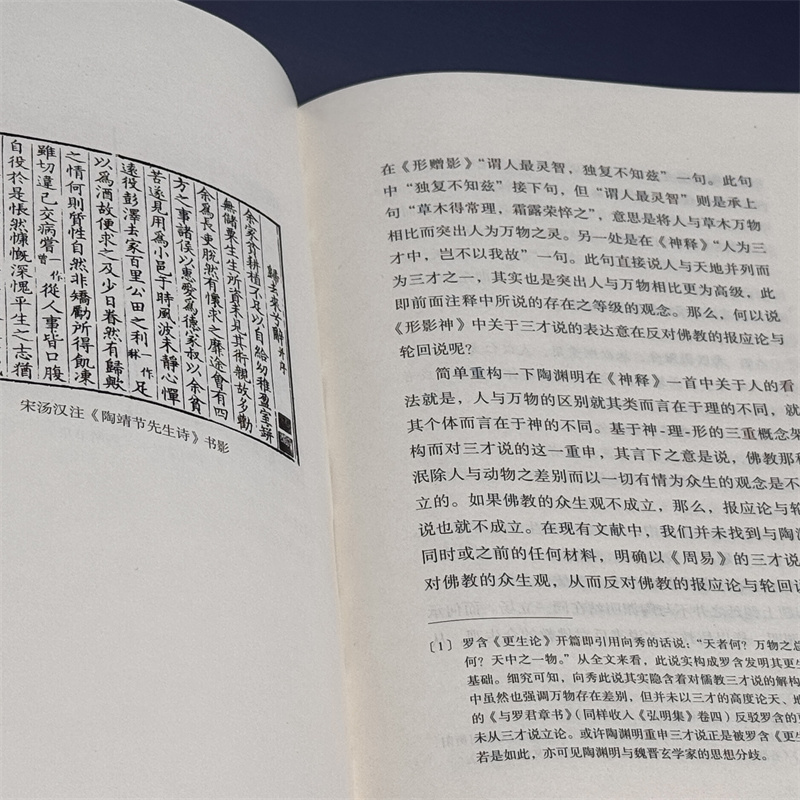 歸去來兮辭并序
余家貧耕植不足以自給幼稚盈室缾
無儲粟生生所資未見其術親故多勸
余爲長吏脱然有懷求之靡途會有四
方之事諸侯以惠愛爲德家叔以余貧
苦遂見用爲小邑于時風波未靜心憚
遠役彭澤去家百里公田之利一作秫足
以爲酒故便求之及少日眷然有歸歟
之情何則質性自然非矯勵所得飢凍
雖切違己交病嘗一作曾從人事皆口腹
自役於是悵然慷慨深愧平生之志猶
宋汤汉注《陶靖节先生诗》书影
在《形赠影》“谓人最灵智，独复不知兹”一句。此句
中“独复不知兹”接下句，但“谓人最灵智”则是承上
句“草木得常理，霜露荣悴之”，意思是将人与草木万物
相比而突出人为万物之灵。另一处是在《神释》“人为三
才中，岂不以我故”一句。此句直接说人与天地并列而
为三才之一，其实也是突出人与万物相比更为高级，此
即前面注释中所说的存在之等级的观念。那么，何以说
《形影神》中关于三才说的表达意在反对佛教的报应论与
轮回说呢？
简单重构一下陶渊明在《神释》一首中关于人的看
法就是，人与万物的区别就其类而言在于理的不同，就
其个体而言在于神的不同。基于神-理-形的三重概念架
构而对三才说的这一重申，其言下之意是说，佛教那种
泯除人与动物之差别而以一切有情为众生的观念是不
立的。如果佛教的众生观不成立，那么，报应论与轮
说也就不成立。在现有文献中，我们并未找到与陶渊
同时或之前的任何材料，明确以《周易》的三才说
对佛教的众生观，从而反对佛教的报应论与轮回说
〔1〕 罗含《更生论》开篇即引用向秀的话说：“天者何？万物之总
何？天中之一物。”从全文来看，此说实构成罗含发明其更
基础。细究可知，向秀此说其实隐含着对儒教三才说的解构
中虽然也强调万物存在差别，但并未以三才的高度论天、地
的《与罗君章书》（同样收入《弘明集》卷四）反驳罗含的更
未从三才说立论。或许陶渊明重申三才说正是被罗含《更生
若是如此，亦可见陶渊明与魏晋玄学家的思想分歧。